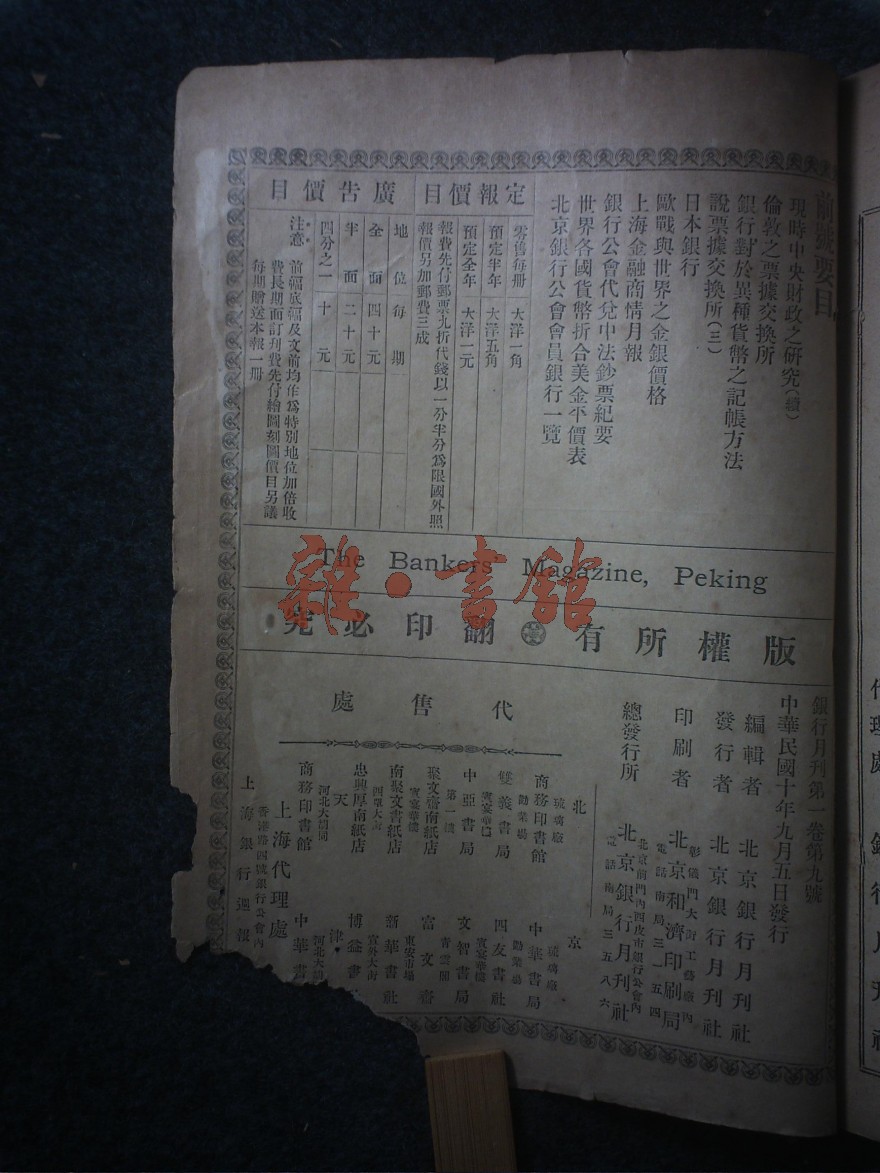 前號要目
現時中央財政之研究(續)
倫敦之票據交換所
銀行對於異種貨幣之記帳方法
說票據交換所(三)
日本銀行
歐戰與世界之金銀價格
上海金融商情月報
銀行公會代兌中法鈔票紀要
世界各國貨幣折合美金平價表
北京銀行公會會員銀行一覽
定報價目
零售每冊 大洋一角
預定半年 大洋五角
預定全年 大洋一元
報費先付郵票九折代錢以一分半分爲限國外照
報價另加郵費三成
廣告價目
地位每期
全面四十元
半面二十元
四分之一十元
注意 前幅底幅及文前均作爲特別地位加倍收
費長期面訂刊費先付繪圖刻圖價目另議
每期贈送本報一冊
The Bankers Magazine, Peking
雜·書館
版權所有 翻印必究
銀行月刊第一卷第九號
中華民國十年九月五日發行
編輯者 北京銀行月刊社
發行者 北京銀行月刊社
彰儀門大街工藝廠內
印刷者 北京和濟印刷局
電話南局三一五四
北京前門內四皮市銀行公會內
總發行所 北京銀行月刊社
電話南局三五八六
代售處
北京
琉璃廠 商務印書館
琉璃廠 中華書局
勸業場 雙義書局
勸業場 四友書社
賓宴華樓 中亞書局
賓宴華樓 文智書局
第一樓 聚文齋南紙店
青雲閣 富文齋
賓宴華樓 南聚文書紙店
東安市場 新華書社
四單大街 忠興厚南紙店
宣外大街 博益書
天津
河北大胡同 商務印書館
河北大胡 中華書
上海代理處
香港路四號銀行公會內
上海銀行週報
代理處 銀行月刊社